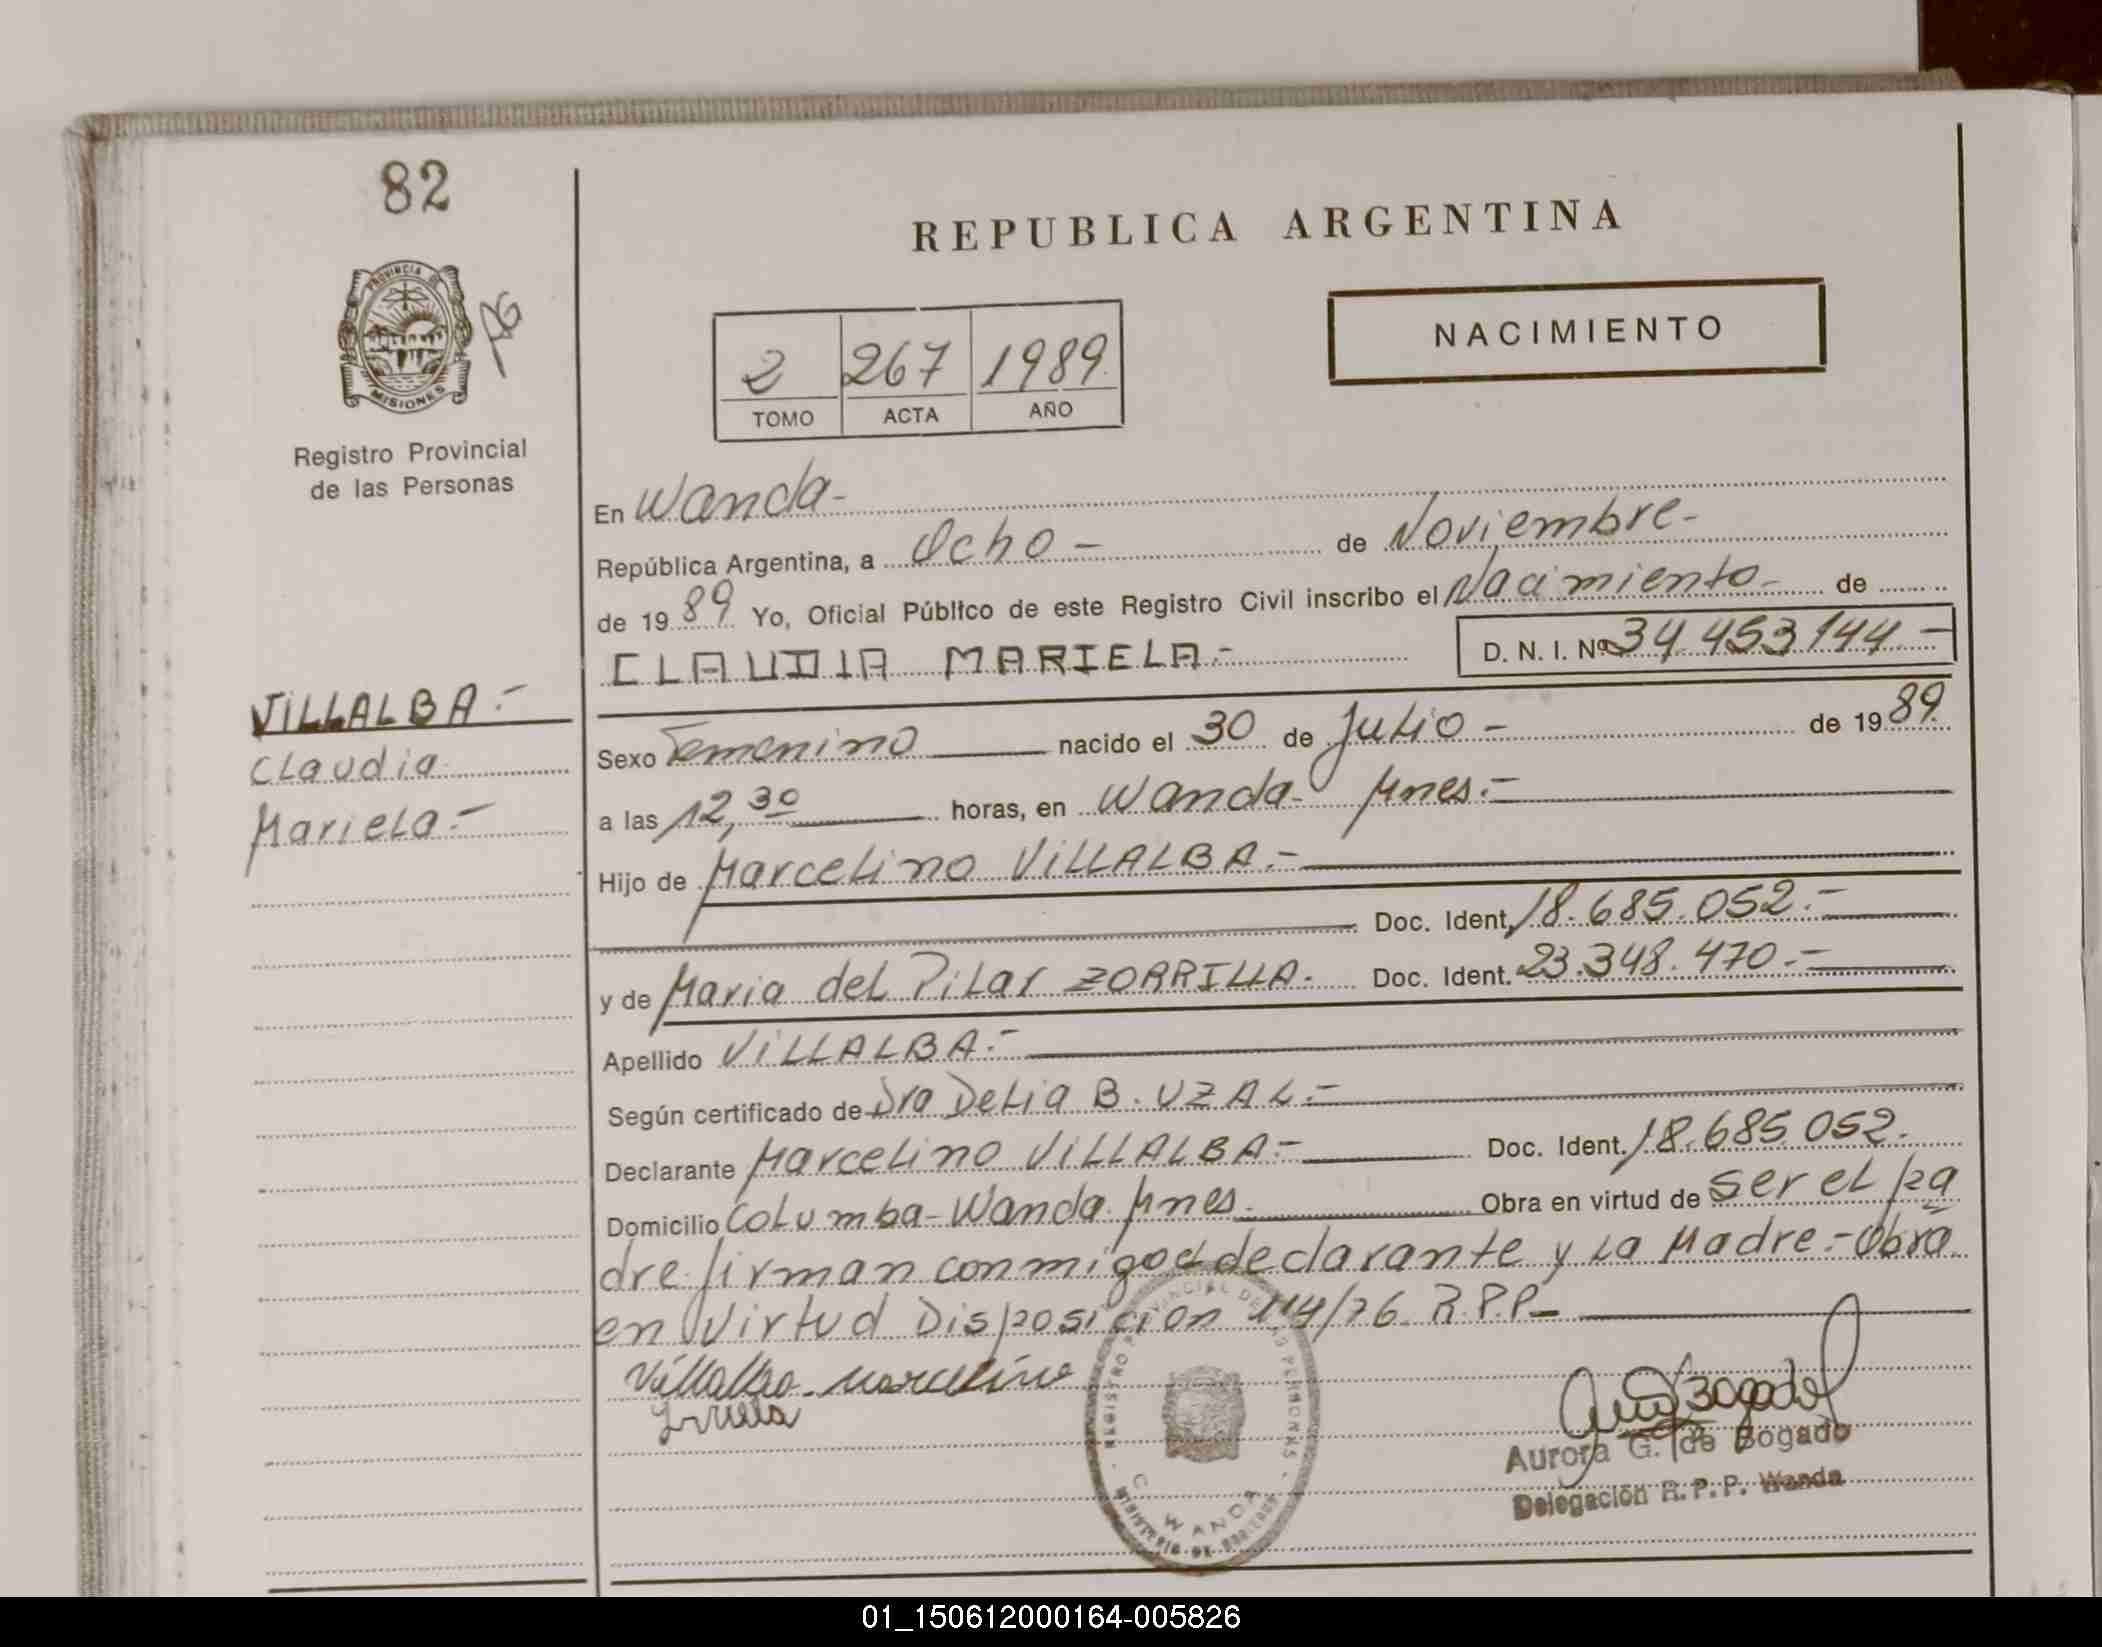 82
REPUBLICA ARGENTINA
PROVINCIA DE
MISIONES
AG
NACIMIENTO
2 267 1989
TOMO ACTA AÑO
Registro Provincial
de las Personas
En Wanda-
República Argentina, a Ocho - de Noviembre-
de 19 89 Yo, Oficial Público de este Registro Civil inscribo el Nacimiento- de
CLAUDIA MARIELA.- D. N. I. Nº 34 453 144 -
VILLALBA.-
Claudia
Mariela.-
Sexo Femenino nacido el 30 de Julio - de 19 89.
a las 12,30 horas, en Wanda- Mnes.-
Hijo de Marcelino VILLALBA.-
Doc. Ident. 18.685.052.-
y de Maria del Pilar ZORRILLA. Doc. Ident. 23.348.470.-
Apellido VILLALBA.-
Según certificado de Dra Delia B. UZAL.-
Declarante Marcelino VILLALBA.- Doc. Ident. 18.685.052.
Domicilio Columba-Wanda. Mnes. Obra en virtud de ser el pa
dre. firman conmigo el declarante y la Madre.- Obra
en Virtud Disposicion 114/76. R.P.P-
Villalba marcelino
REGISTRO PROVINCIAL DE LAS PERSONAS
WANDA
Aurora G. de Bogado
Delegación R.P.P. Wanda
01_150612000164-005826